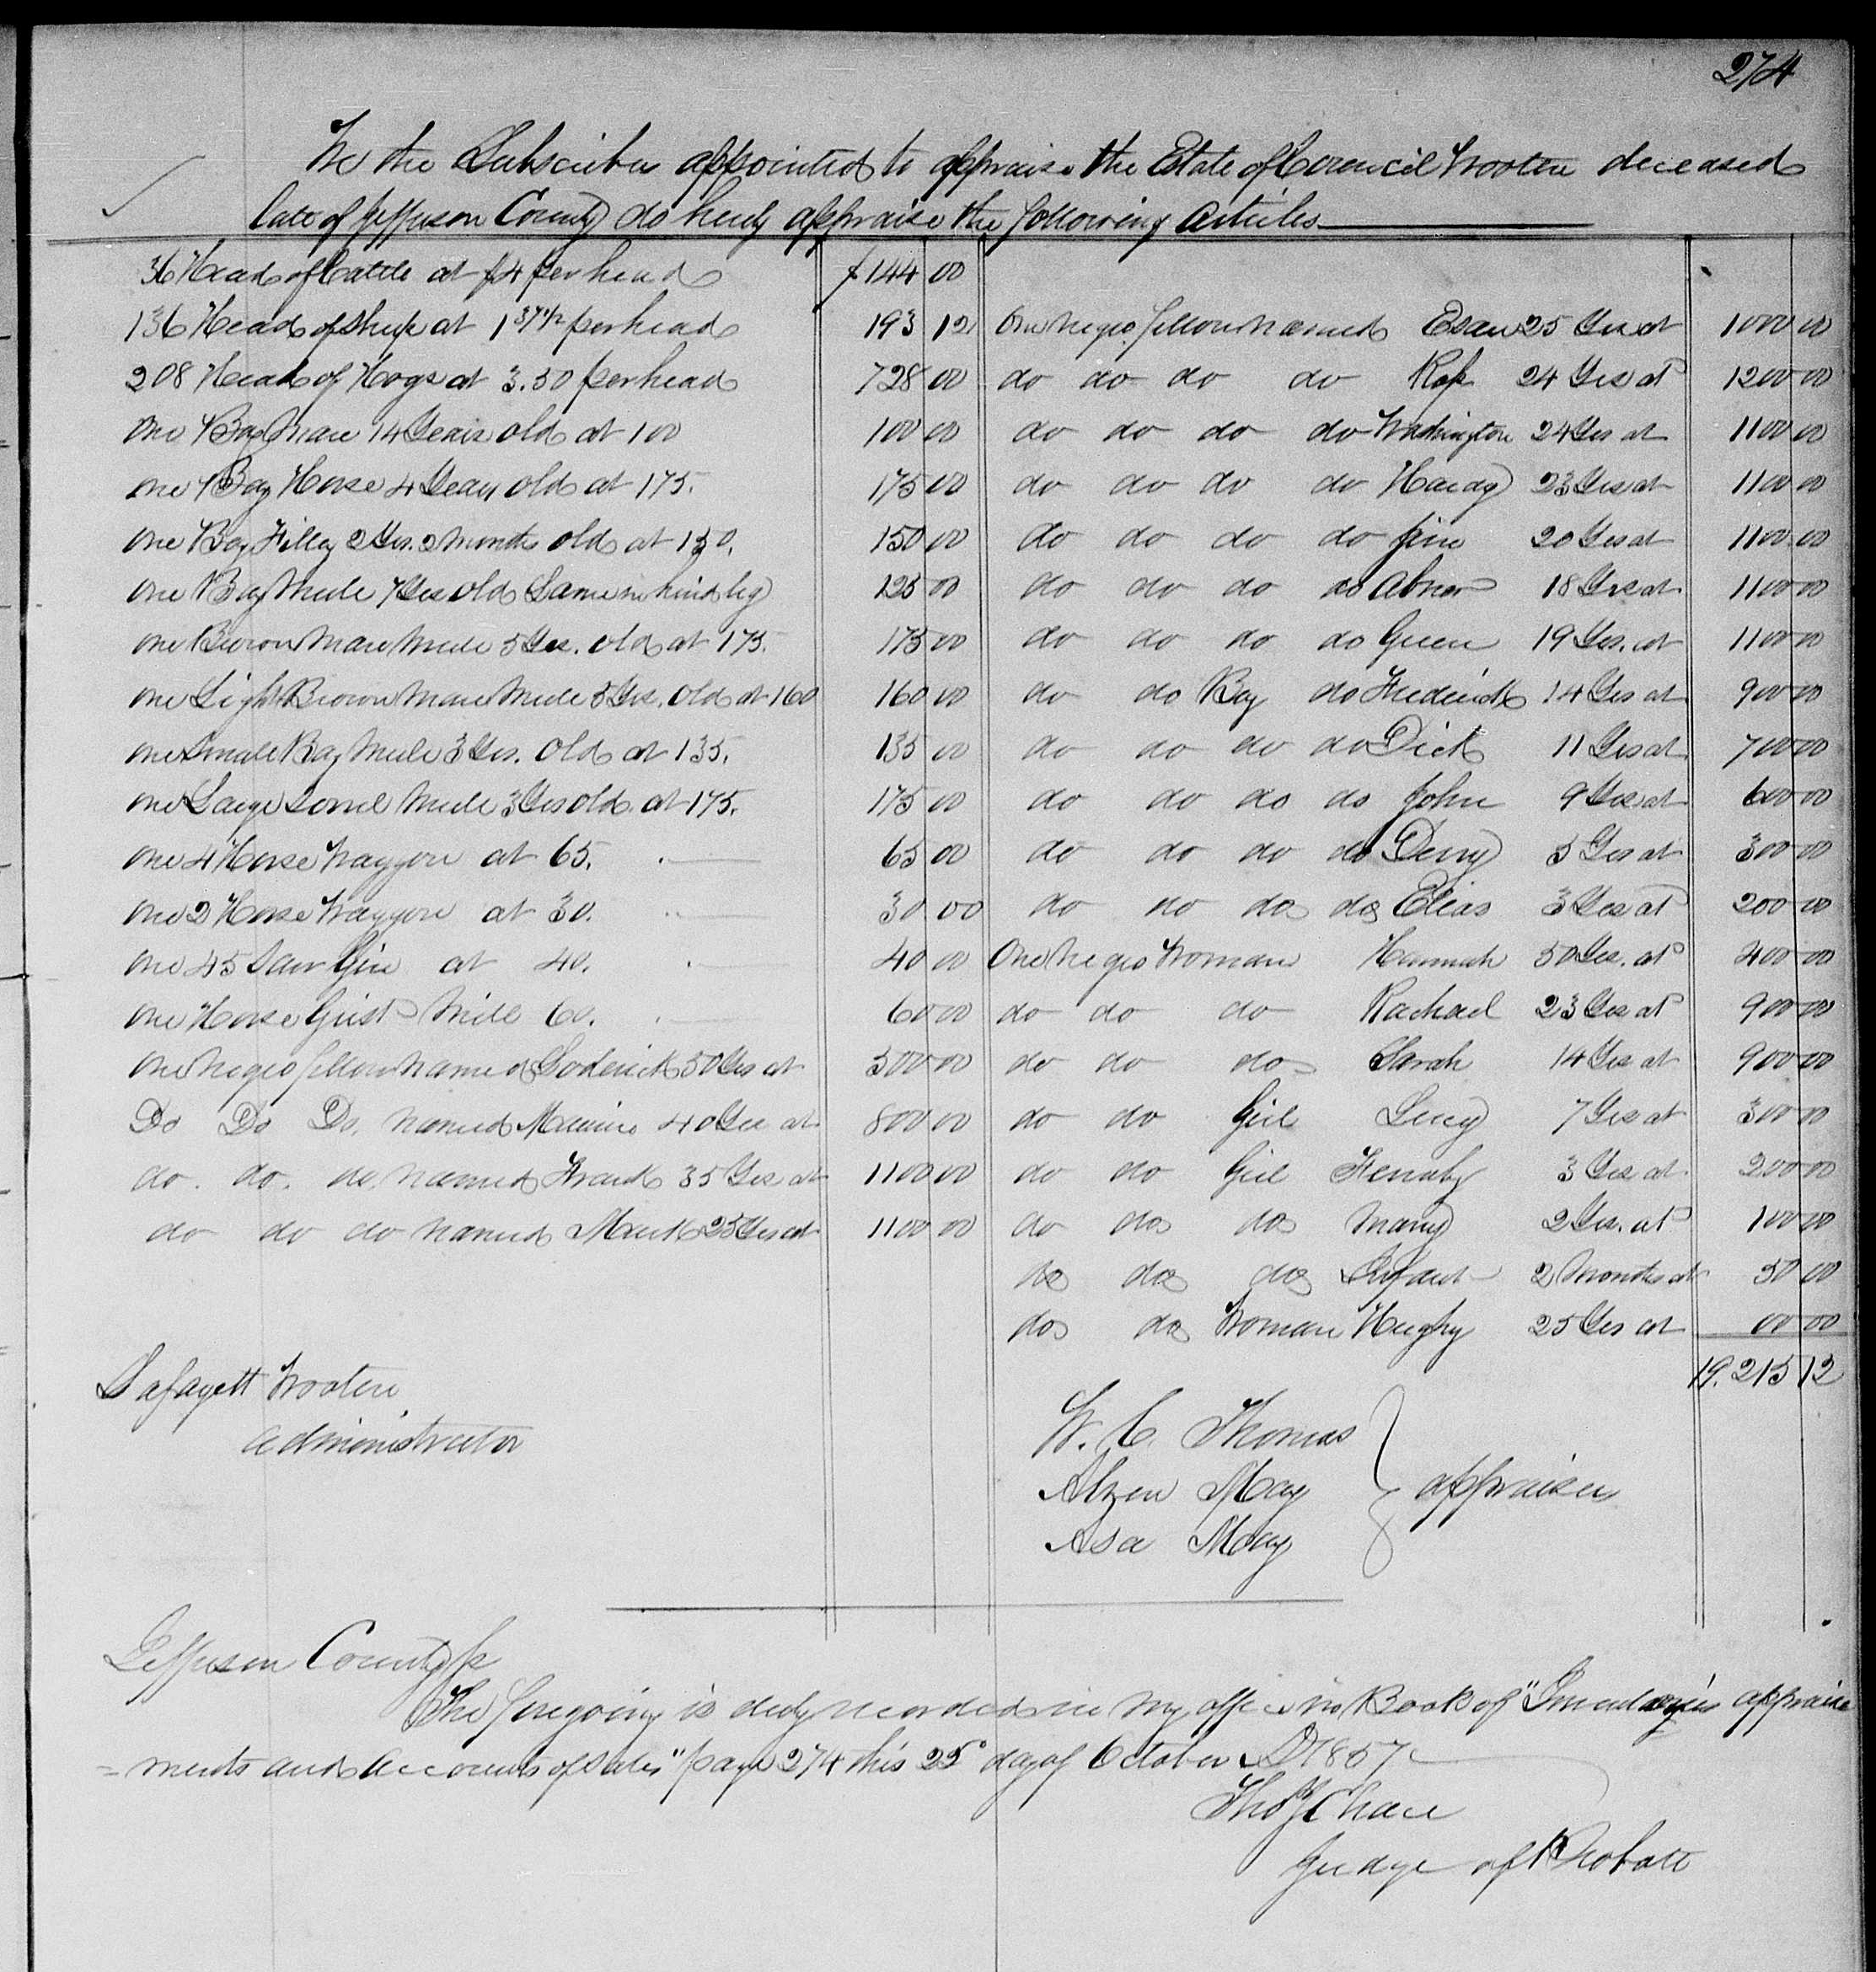 274
We the Subscribers appointed to appraise the Estate of Council Wooten deceased
late of Jefferson County do herby appraise the following articles
36 Head of Cattle at $4 per head $144 00
136 Head of Sheep at 1 37 1/2 per head 193 12
208 Head of Hogs at 3.50 per head 728 00
One Bay Mare 14 Years old at 100 100 00
One Bay Horse 4 Years old at 175. 175 00
One Bay Filley 2 Yrs. 2 Months old at 150. 150 00
One Bay Mule 7 Yrs old Lame in hind leg 125 00
One Brown Mare Mule 5 Yrs. old at 175. 175 00
One Light Brown Mare Mule 5 Yrs. old at 160 160 00
One Small Bay Mule 3 Yrs. old at 135. 135 00
One Large Sorrel Mule 3 Yrs old at 175. 175 00
One 4 Horse Waggon at 65. 65 00
One 2 Horse Waggon at 30. 30 00
One 45 Saw Gin at 40. 40 00
One Horse Grist Mill 60. 60 00
One negro fellow named 50 Yrs at 500 00
Do Do Do. named 40 Yrs at 800 00
do. do. do. named Frank 35 Yrs at 1100 00
do do do named 25 Yrs at 1100 00
One negro fellow named Esau 25 Yrs at 1000 00
do do do do 24 Yrs at 1200 00
do do do do Washington 24 Yrs at 1100 00
do do do do Hardy 23 Yrs at 1100 00
do do do do Jim 20 Yrs at 1100 00
do do do do Abner 18 Yrs at 1100 00
do do do do Green 19 Yrs. at 1100 00
do do Boy do Frederick 14 Yrs at 900 00
do do do do Dick 11 Yrs at 700 00
do do do do John 9 Yrs at 600 00
do do do do 5 Yrs at 300 00
do do do do Elias 3 Yrs at 200 00
One negro Woman Hannah 50 Yrs. at 400 00
do do do Rachael 23 Yrs at 900 00
do do do Sarah 14 Yrs at 900 00
do do Girl Lucy 7 Yrs at 300 00
do do Girl 3 Yrs at 200 00
do do do Mary 2 Yrs. at 100 00
do do do Infant 2 Months at 50 00
do do Woman 25 Yrs at 00 00
19.215 12
Lafayett Wooten
Administrator
W. C. Thomas
May
Asa May
appraisers
Jefferson County
The foregoing is duly recorded in my office in Book of "Inventories appraise
= ments and Accounts of Sales" page 274 this 25 day of October AD 1857
Judge of Probate